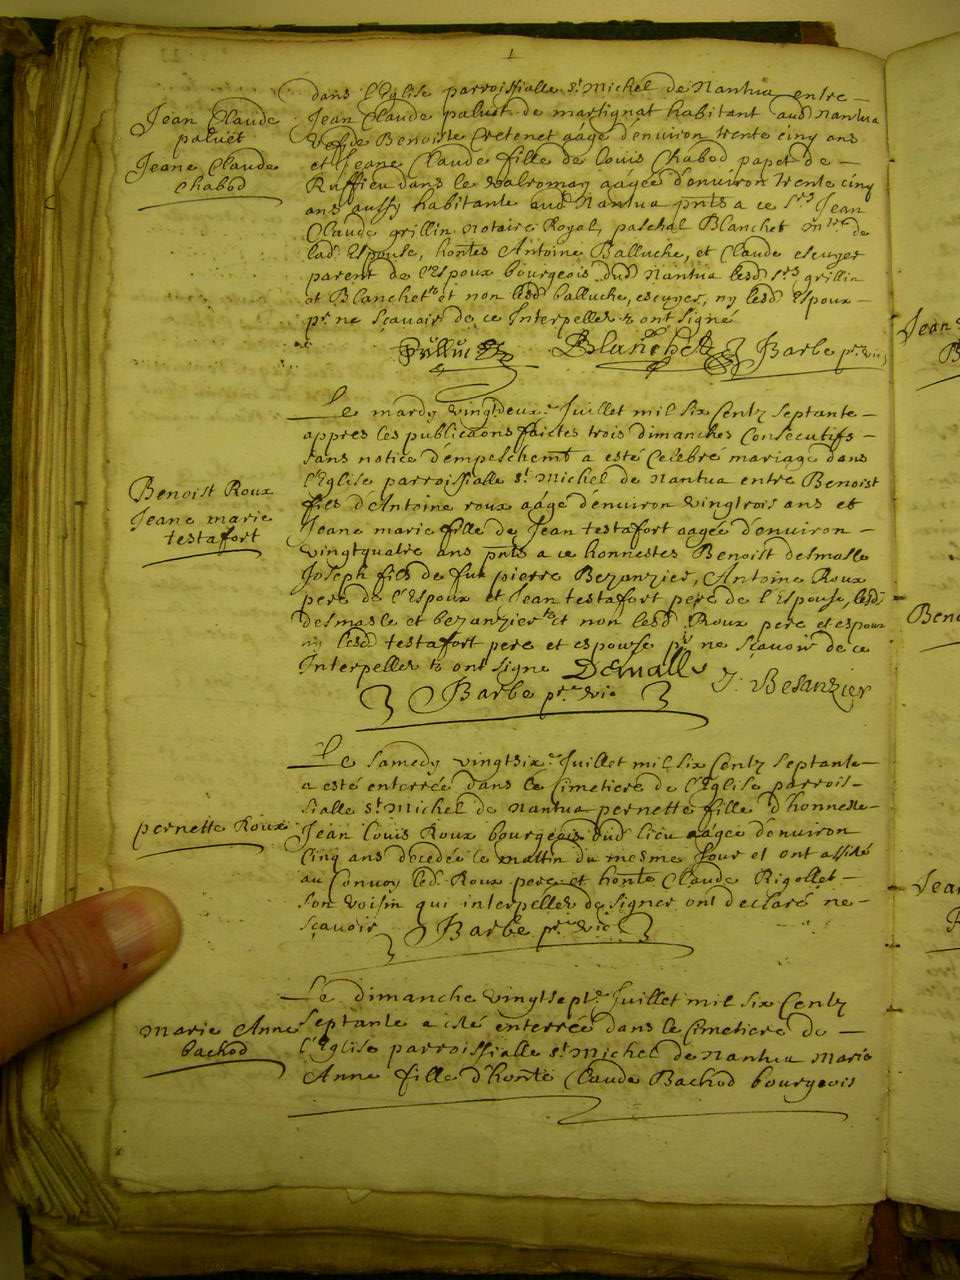 Jean Claude
paluet
Jeane Claude
Chabod
dans l'Eglise parroissialle st Michel de Nantua entre
Jean Claude paluet de martignat habitant aud Nantua
vefve de Benoiste Cretenet aagé d'environ trente cinq ans
et Jeane Claude fille de louis Chabod papet de
Ruffieu dans le valromay aagée d'environ trente cinq
ans aussy habitante aud Nantua pnts a ce srs Jean
Claude grillin Notaire Royal, paschal Blanchet de
lad Espouse, hontes Antoine Balluche, et Claude escuyer
parent de l'Espoux bourgeois dud Nantua lesd srs grillin
et Blanchet et non lesd balluche, escuyer, ny lesd Espoux
pr ne sçavoir de ce Interpellez ont signé
Blanchet Barbe ptre vic
Benoist Roux
Jeane marie
testafort
Le mardy vingtdeuxe Juillet mil six Centz septante
appres les publicaons faictes trois dimanches Consecutifs
sans notice d'empeschemt a esté Celebré mariage dans
l'Eglise parroissialle st Michel de Nantua entre Benoist
fils d'Antoine roux aagé d'environ vingtrois ans et
Jeane marie fille de Jean testafort aagée d'environ
vingtquatre ans pnts a ce honnestes Benoist desmasle
Joseph fils de fut pierre Bezanzier, Antoine Roux
pere de l'Espoux et Jean testafort pere de l'Espouse, lesd
desmasle et bezanzier et non lesd Roux pere et espoux
ny lesd testafort pere et espouse pr ne sçavoir de ce
Interpellez ont signe Demalle J: Besanzier
Barbe ptre vic
pernette Roux
Le samedy vingtsixe Juillet mil six Centz septante
a esté enterrée dans le Cimetiere de l'Eglise parrois-
sialle st Michel de Nantua pernette fille d'honneste
Jean louis Roux bourgeois dud lieu aagée d'environ
Cinq ans decedée le mattin du mesme Jour et ont assisté
au Convoy led Roux pere et honte Claude Rigollet
son voisin qui interpellez de signer ont declaré ne
sçavoir Barbe ptre vic
Marie Anne
bachod
Le dimanche vingtsepte Juillet mil six Centz
septante a esté enterrée dans le Cimetiere de
l'Eglise parroissialle st Michel de Nantua Marie
Anne fille d'honte Claude Bachod bourgeois